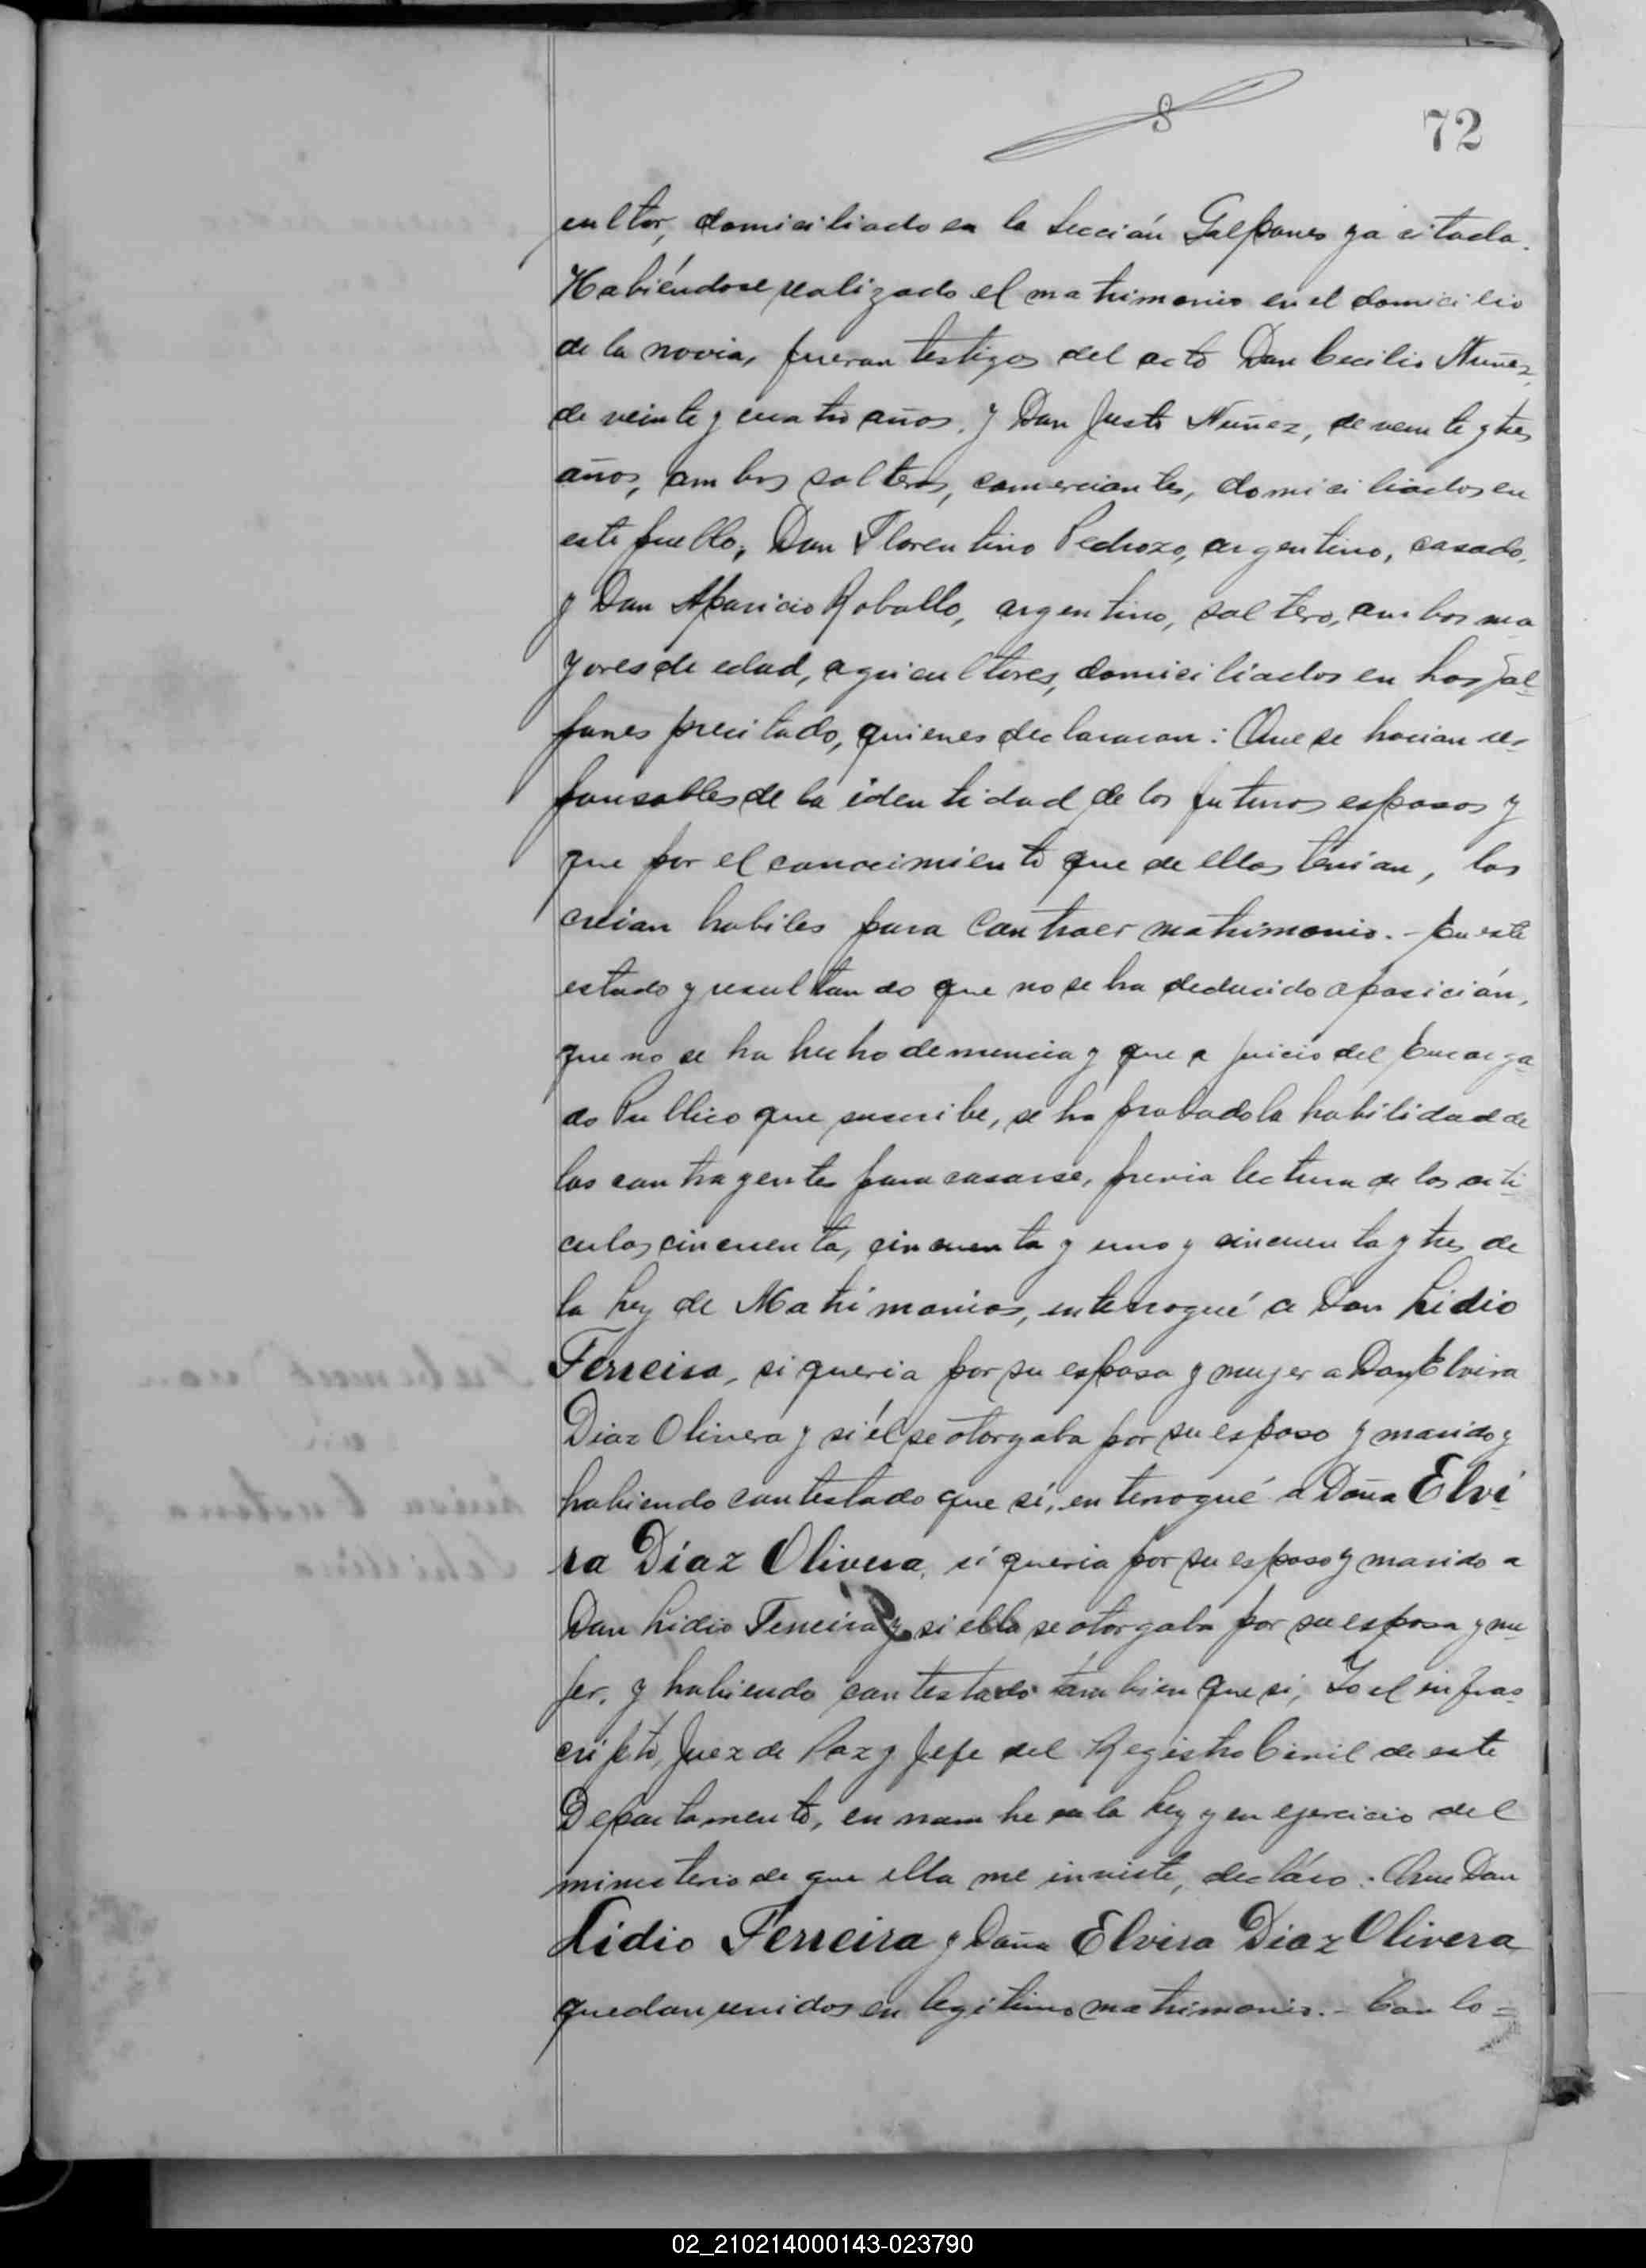 8
72
cultor, domiciliado en la Sección Galpones ya citada.
Habiéndose realizado el matrimonio en el domicilio
de la novia, fueron testigos del acto Don Cecilio Nuñez,
de veinte y cuatro años, y Don Justo Nuñez, de veinte y tres
años, ambos solteros, comerciantes, domiciliados en
este pueblo; Don Florentino Pedrozo, argentino, casado,
y Don Aparicio Roballo, argentino, soltero, ambos ma
yores de edad, agricultores, domiciliados en Los Gal-
pones precitado, quienes declararon: Que se hacian res-
ponsables de la identidad de los futuros esposos y
que por el conocimiento que de ellos tenian, los
creian habiles para contraer matrimonio.- En este
estado y resultando que no se ha deducido oposición,
que no se ha hecho denuncia y que a juicio del Encarga-
do Publico que suscribe, se ha probado la habilidad de
los contrayentes para casarse, previa lectura de los arti-
culos cincuenta, cincuenta y uno y cincuenta y tres de
la Ley de Matrimonios, interrogué a Don Lidio
Ferreira, si queria por su esposa y mujer a Doña Elvira
Diaz Olivera y si él se otorgaba por su esposo y marido y
habiendo contestado que sí, interrogué a Doña Elvi-
ra Díaz Olivera, si queria por su esposo y marido a
Don Lidio Ferreira y si ella se otorgaba por su esposa y mu-
jer, y habiendo contestado tambien que si, Yo el infras-
cripto, Juez de Paz y Jefe del Registro Civil de este
Departamento, en nombre de la Ley y en ejercicio del
ministerio de que ella me inviste, declaro: Que Don
Lidio Ferreira y Doña Elvira Diaz Olivera
quedan unidos en legitimo matrimonio.- Con lo=
02_210214000143-023790